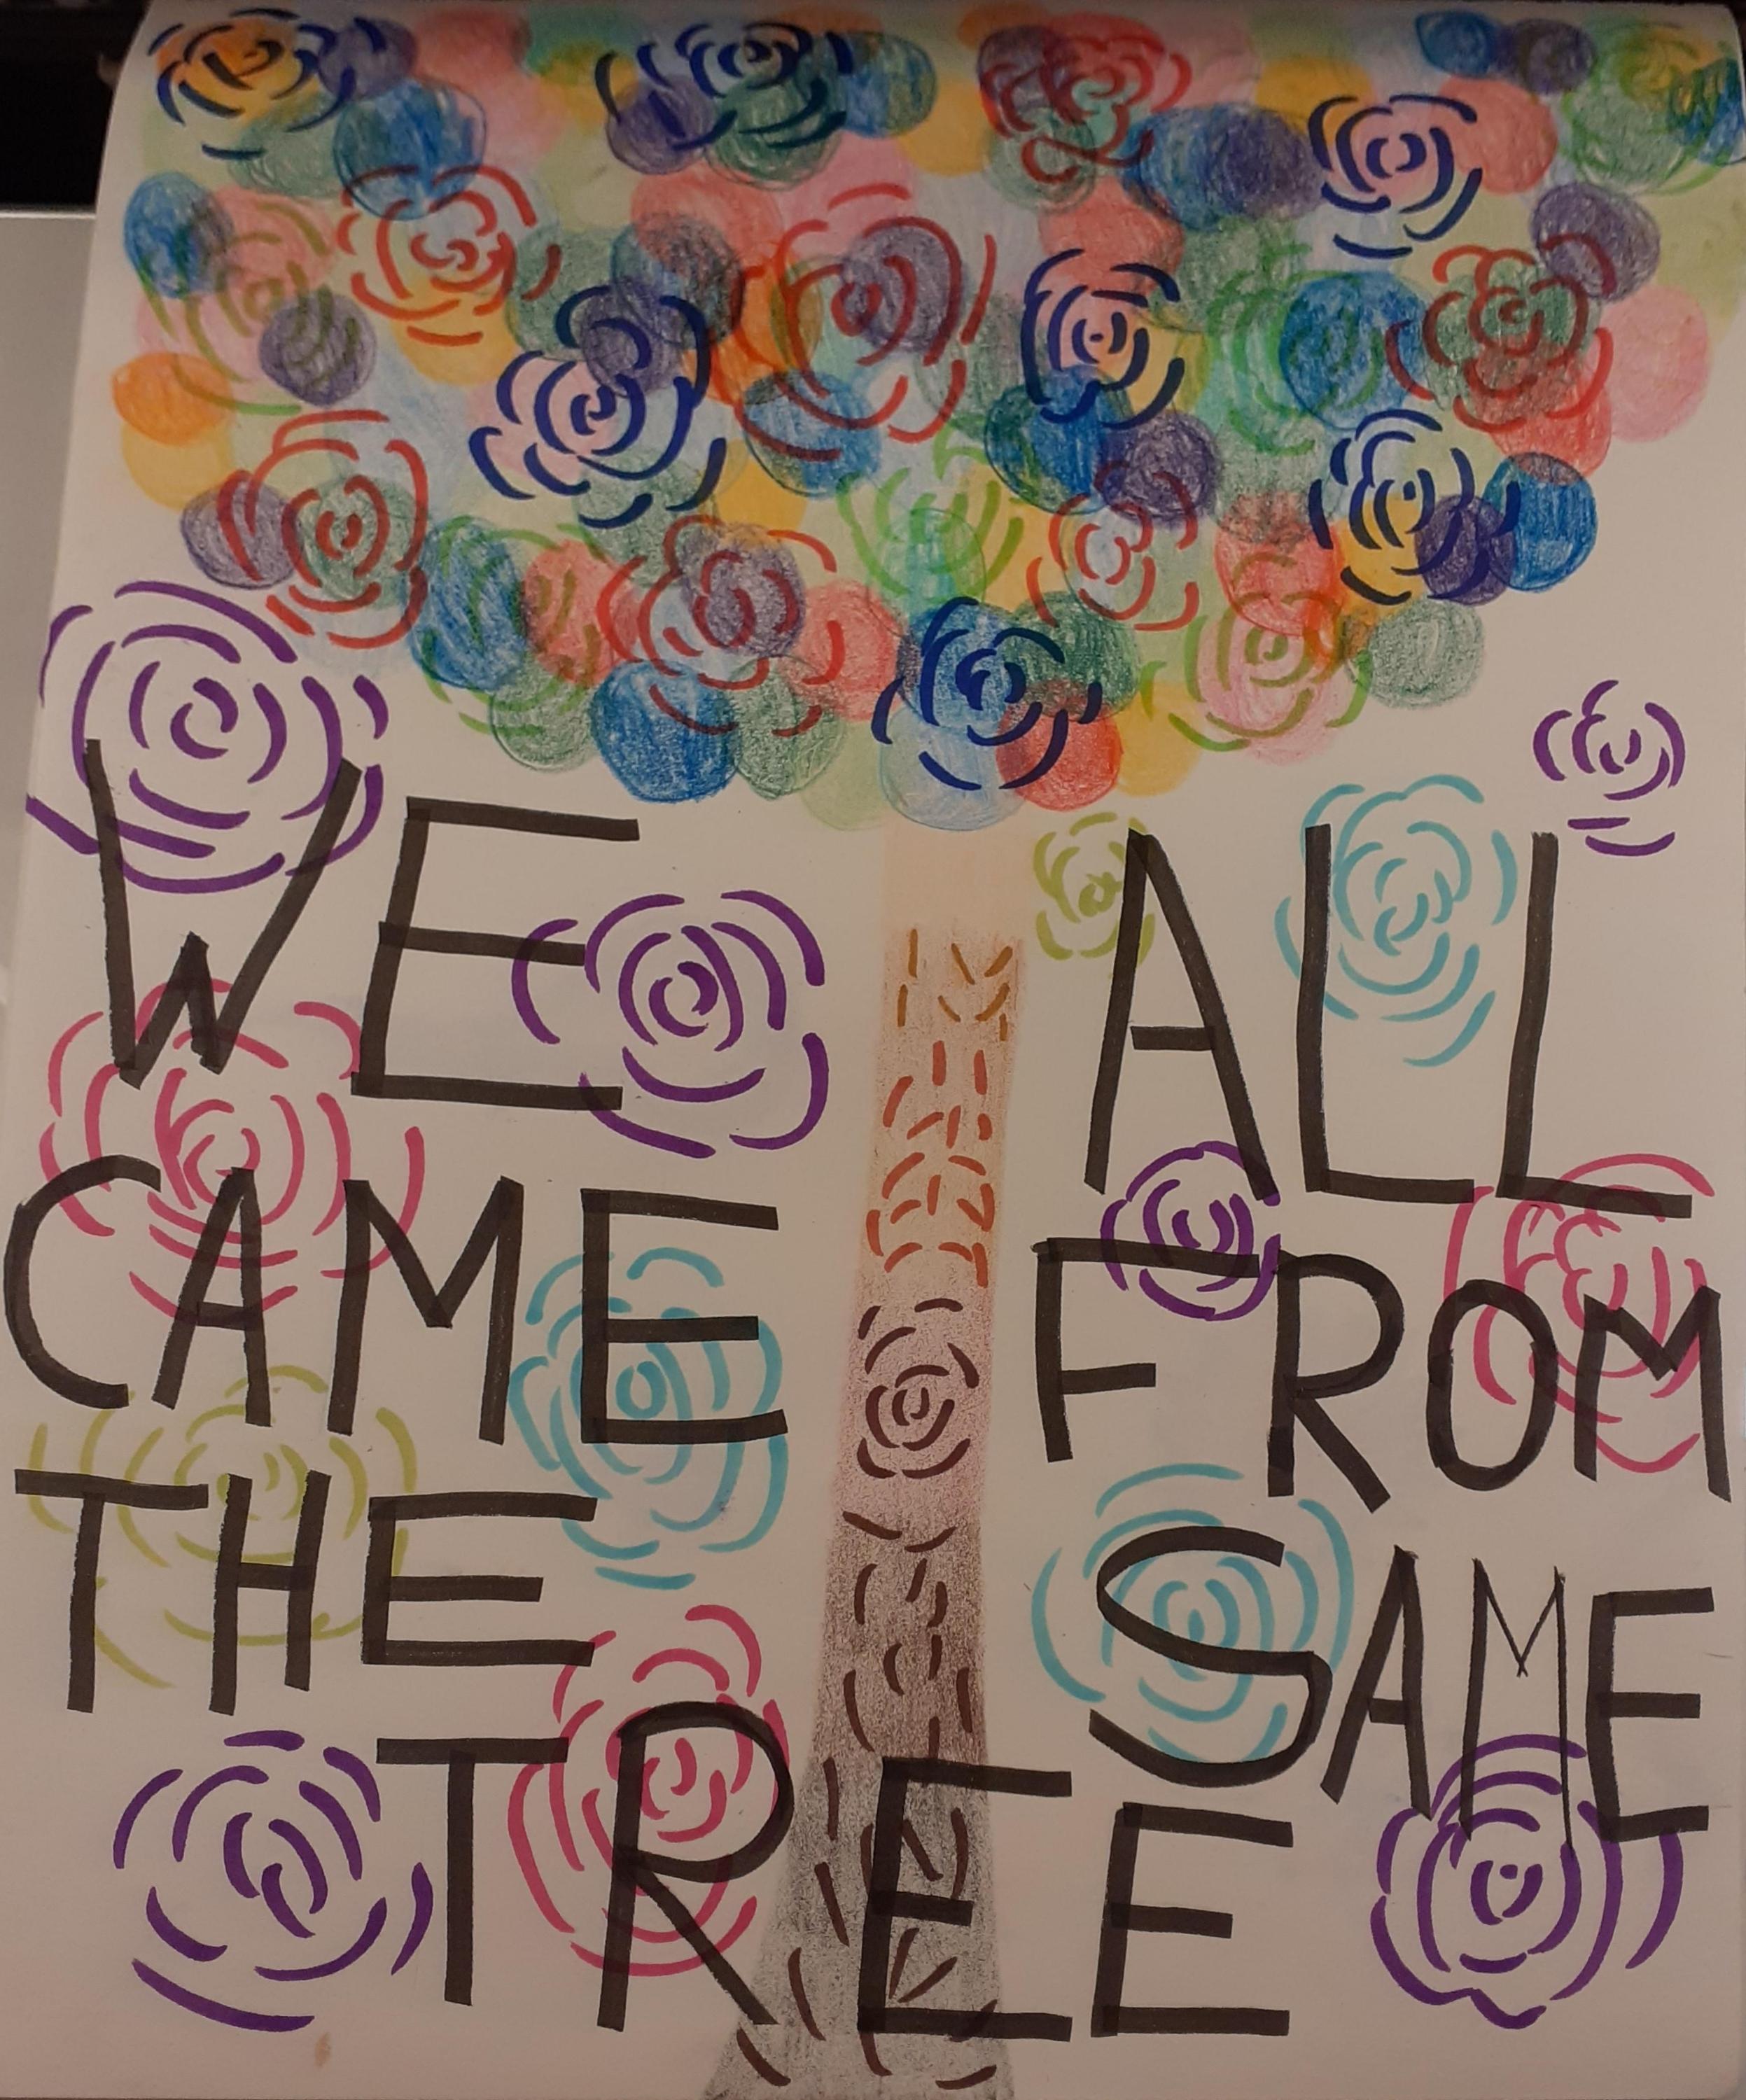 WE ALL
CAME FROM
THE SAME
TREE